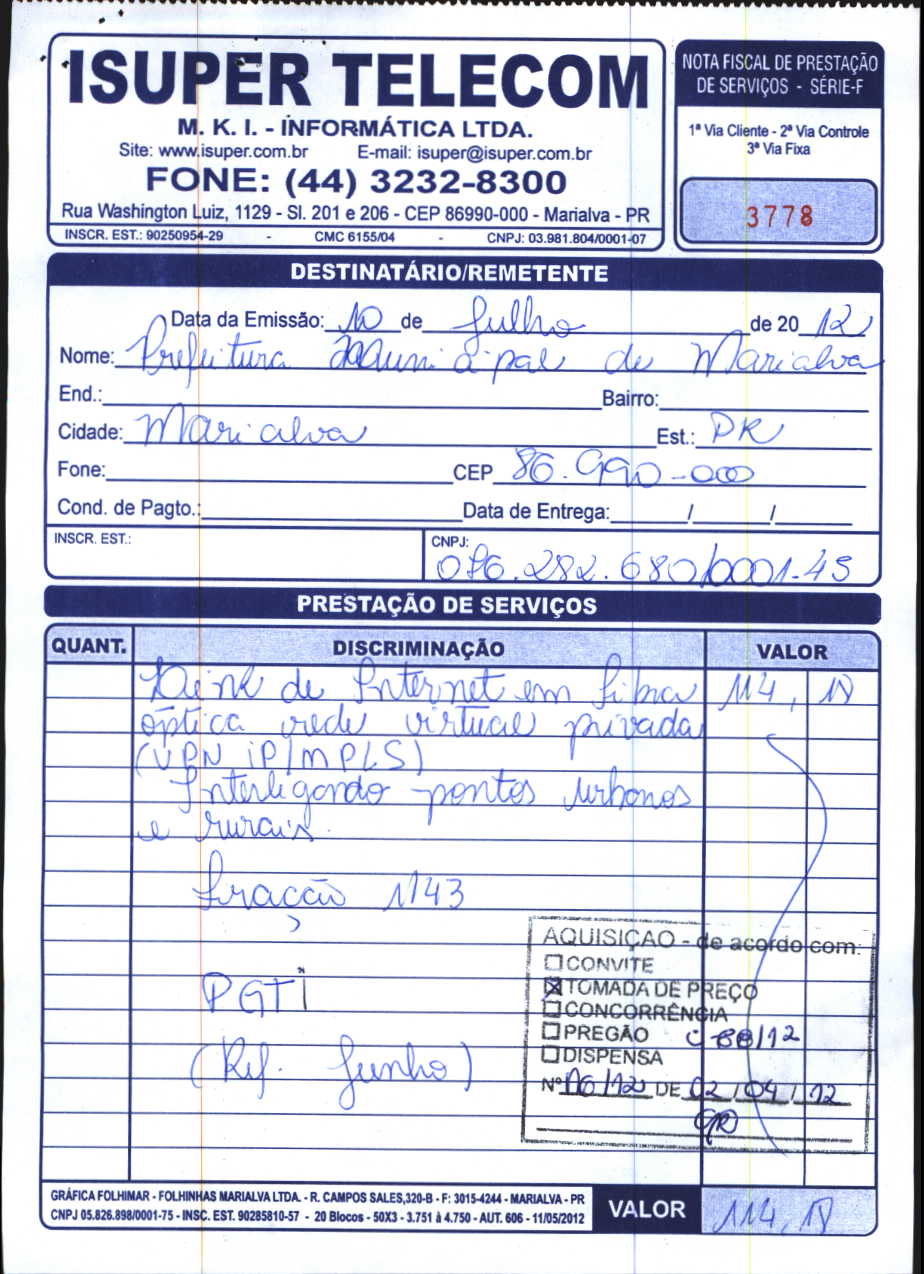 ISUPER TELECOM
M. K. I. - INFORMÁTICA LTDA.
Site: www.isuper.com.br E-mail: isuper@isuper.com.br
FONE: (44) 3232-8300
Rua Washington Luiz, 1129 - Sl. 201 e 206 - CEP 86990-000 - Marialva - PR
INSCR. EST.: 90250954-29 - CMC 6155/04 - CNPJ: 03.981.804/0001-07
NOTA FISCAL DE PRESTAÇÃO
DE SERVIÇOS - SÉRIE-F
1ª Via Cliente - 2ª Via Controle
3ª Via Fixa
3778
DESTINATÁRIO/REMETENTE
Data da Emissão: 10 de Julho de 2012
Nome: Prefeitura Municipal de Marialva
End.: Bairro:
Cidade: Marialva Est.: PR
Fone: CEP 86.990-000
Cond. de Pagto.: Data de Entrega: / /
INSCR. EST.: CNPJ:
076.282.680/0001-45
PRESTAÇÃO DE SERVIÇOS
QUANT. DISCRIMINAÇÃO VALOR
Link de Internet em fibra 114,18
óptica rede virtual privada
(VPN IP/MPLS)
Interligando pontos urbanos
e rurais.
fração 1143
PGTi
(Ref. Junho)
AQUISIÇAO - de acordo com:
CONVITE
TOMADA DE PREÇO
CONCORRÊNCIA
PREGÃO
DISPENSA
Nº 16/12 DE 02/04/12
GRÁFICA FOLHIMAR - FOLHINHAS MARIALVA LTDA. - R. CAMPOS SALES,320-B - F: 3015-4244 - MARIALVA - PR
CNPJ 05.826.898/0001-75 - INSC. EST. 90285810-57 - 20 Blocos - 50X3 - 3.751 à 4.750 - AUT. 606 - 11/05/2012
VALOR 114,18